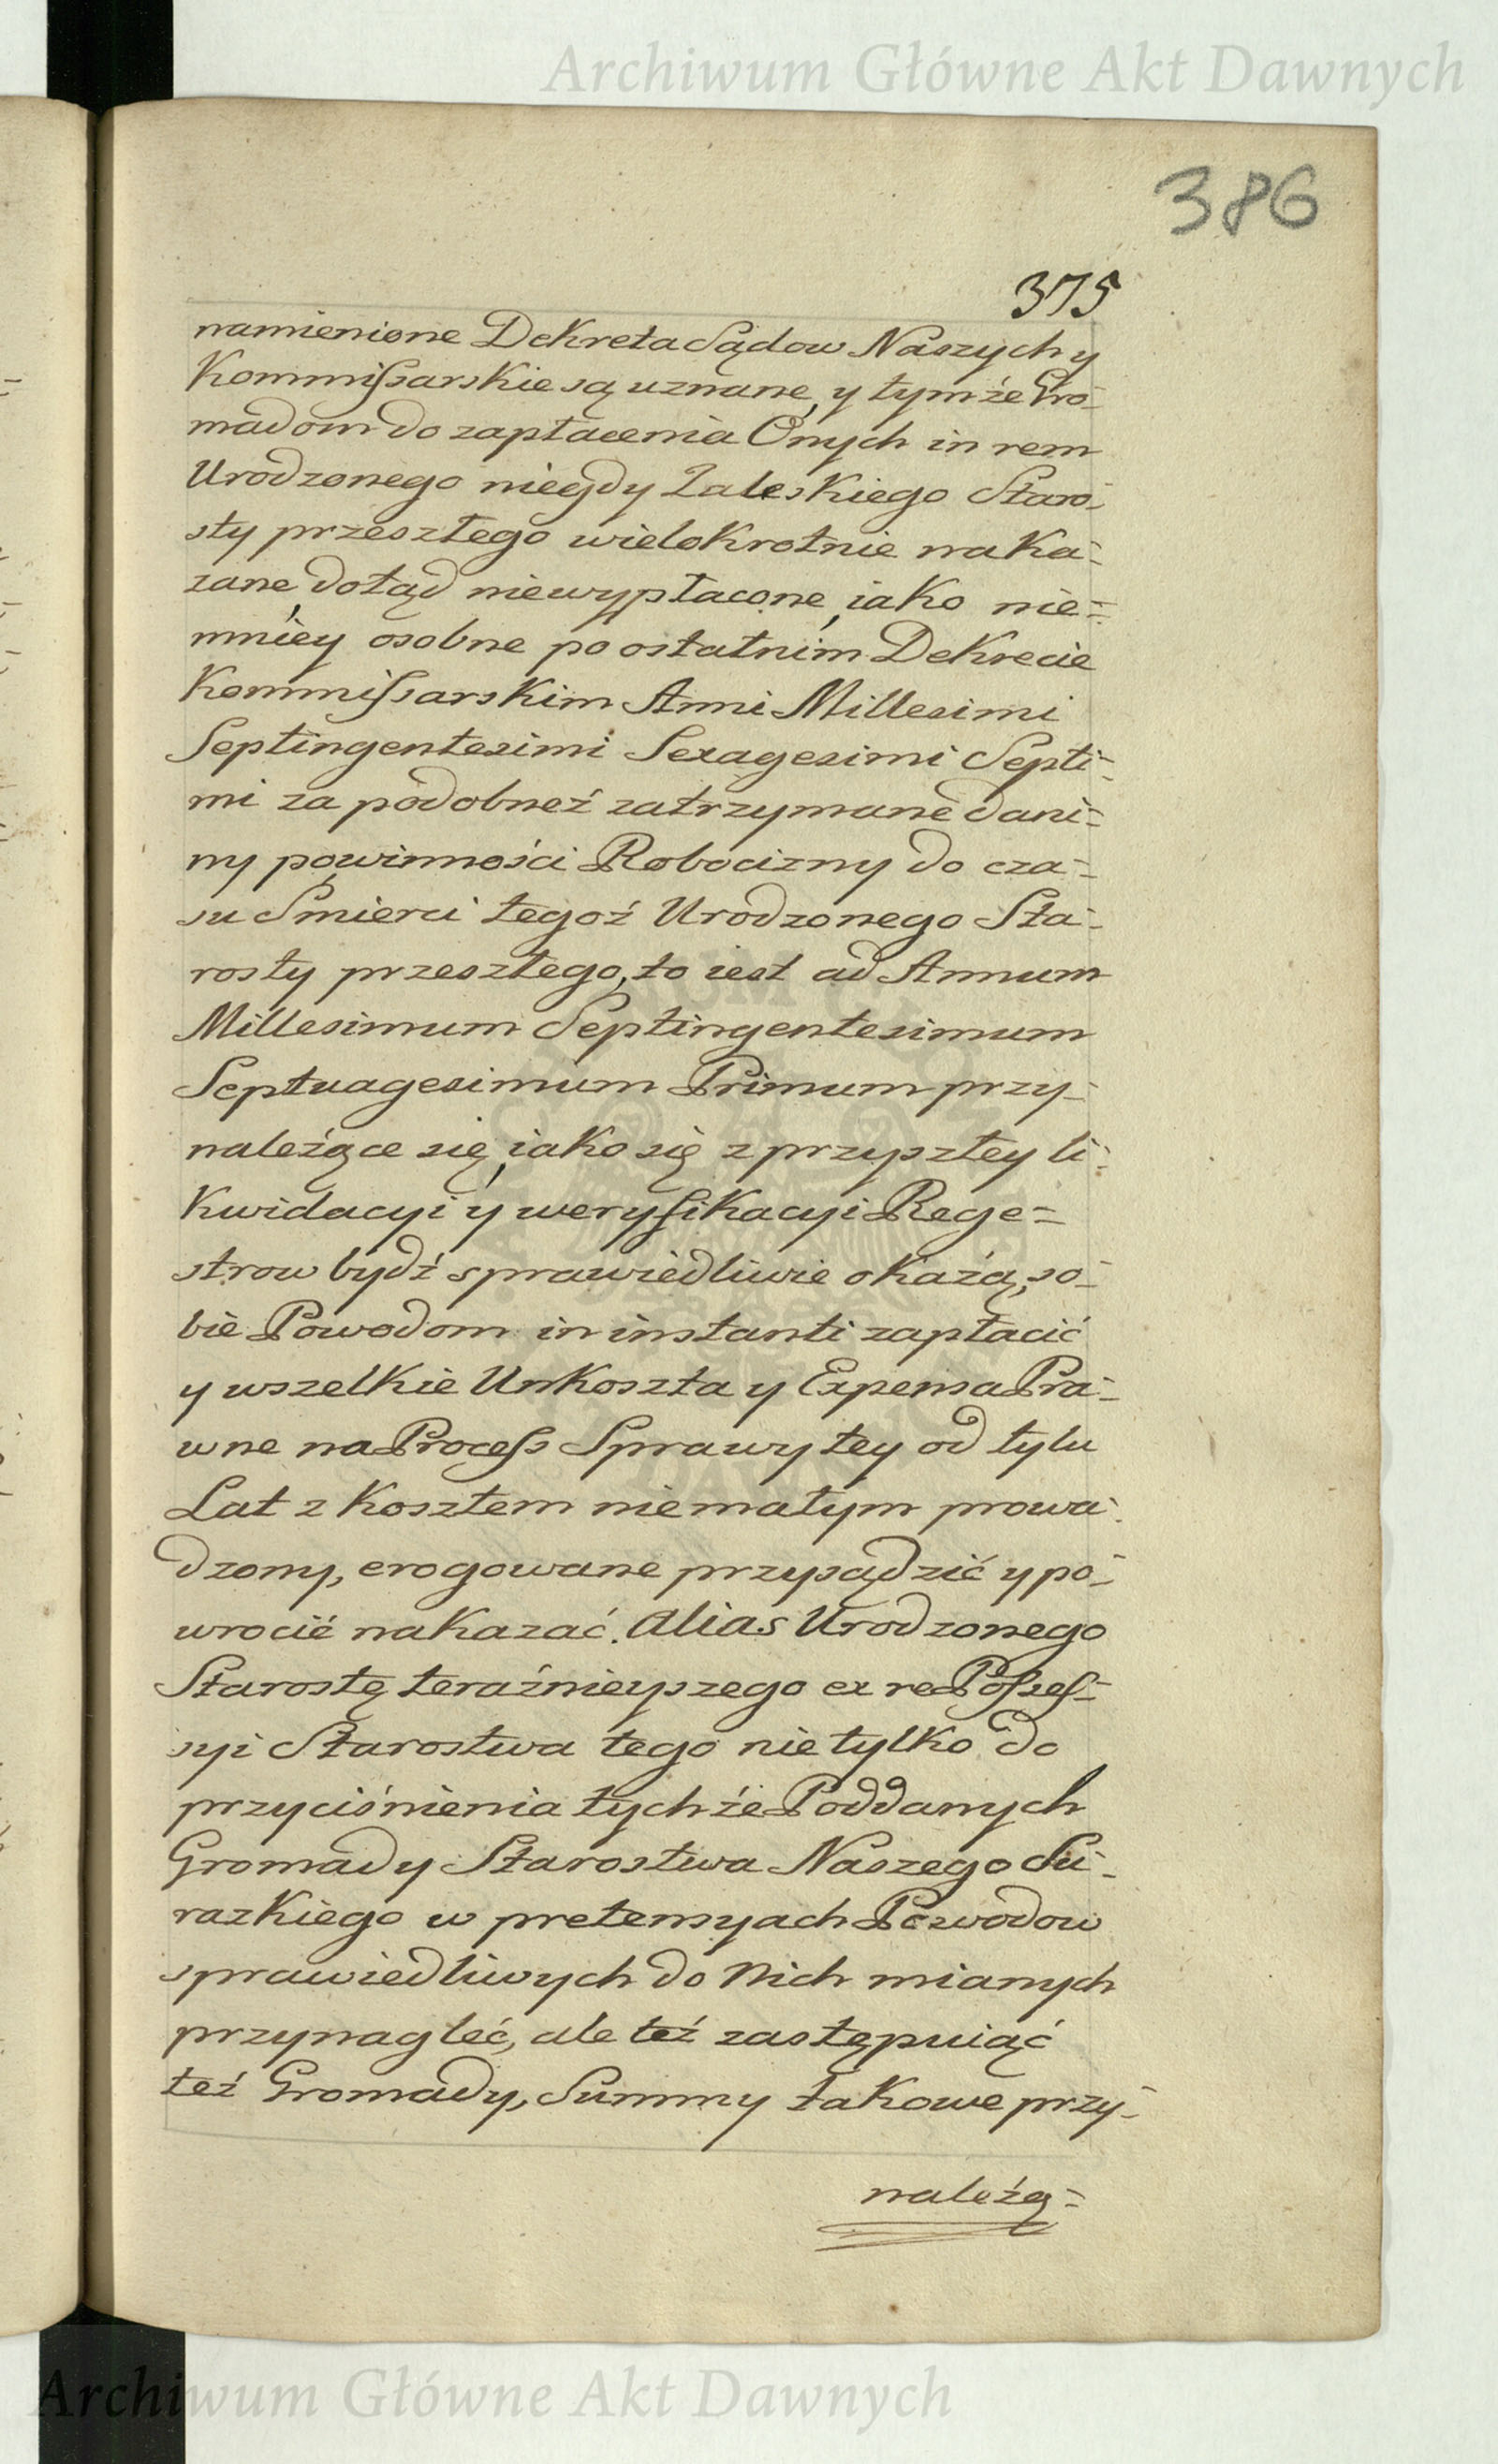 Archiwum Główne Akt Dawnych
386
375
namienione Dekreta Sądow Naszych y
Kommissarskie są uznane, y tymże Gro-
madom do zapłacenia Onych in rem
Urodzonego niegdy Zaleskiego Staro-
sty przeszłego wielokrotnie naka-
zane, dotąd niewypłacone, iako nie-
mniey osobne po ostatnim Dekrecie
Kommissarskim Anni Millesimi
Septingentesimi Sexagesimi Septi-
mi za podobneż zatrzymane dani-
ny powinności Robocizny do cza-
su Smierci tegoż Urodzonego Sta-
rosty przeszłego, to iest ad Annum
Millesimum Septingentesimum
Septuagesimum Primum przy-
należące się, iako się z przyszłey li-
kwidacyi y weryfikacyi Rege-
strow bydź sprawiedliwie okażą, so-
bie Powodom in instanti zapłacić
y wszelkie Unkoszta y Expensa Pra-
wne na Process Sprawy tey od tylu
Lat z kosztem niemałym prowa-
dzony, erogowane przysądzić y po-
wrocić nakazać. Alias Urodzonego
Starostę teraźnieyszego ex re Posses-
syi Starostwa tego nie tylko do
przyciśnienia tychże Poddanych
Gromady Starostwa Naszego Su-
razkiego w pretensyach Powodow
sprawiedliwych do Nich mianych
przynaglić, ale też zastępuiąć
też Gromady, Summy takowe przy-
należą-
Archiwum Główne Akt Dawnych